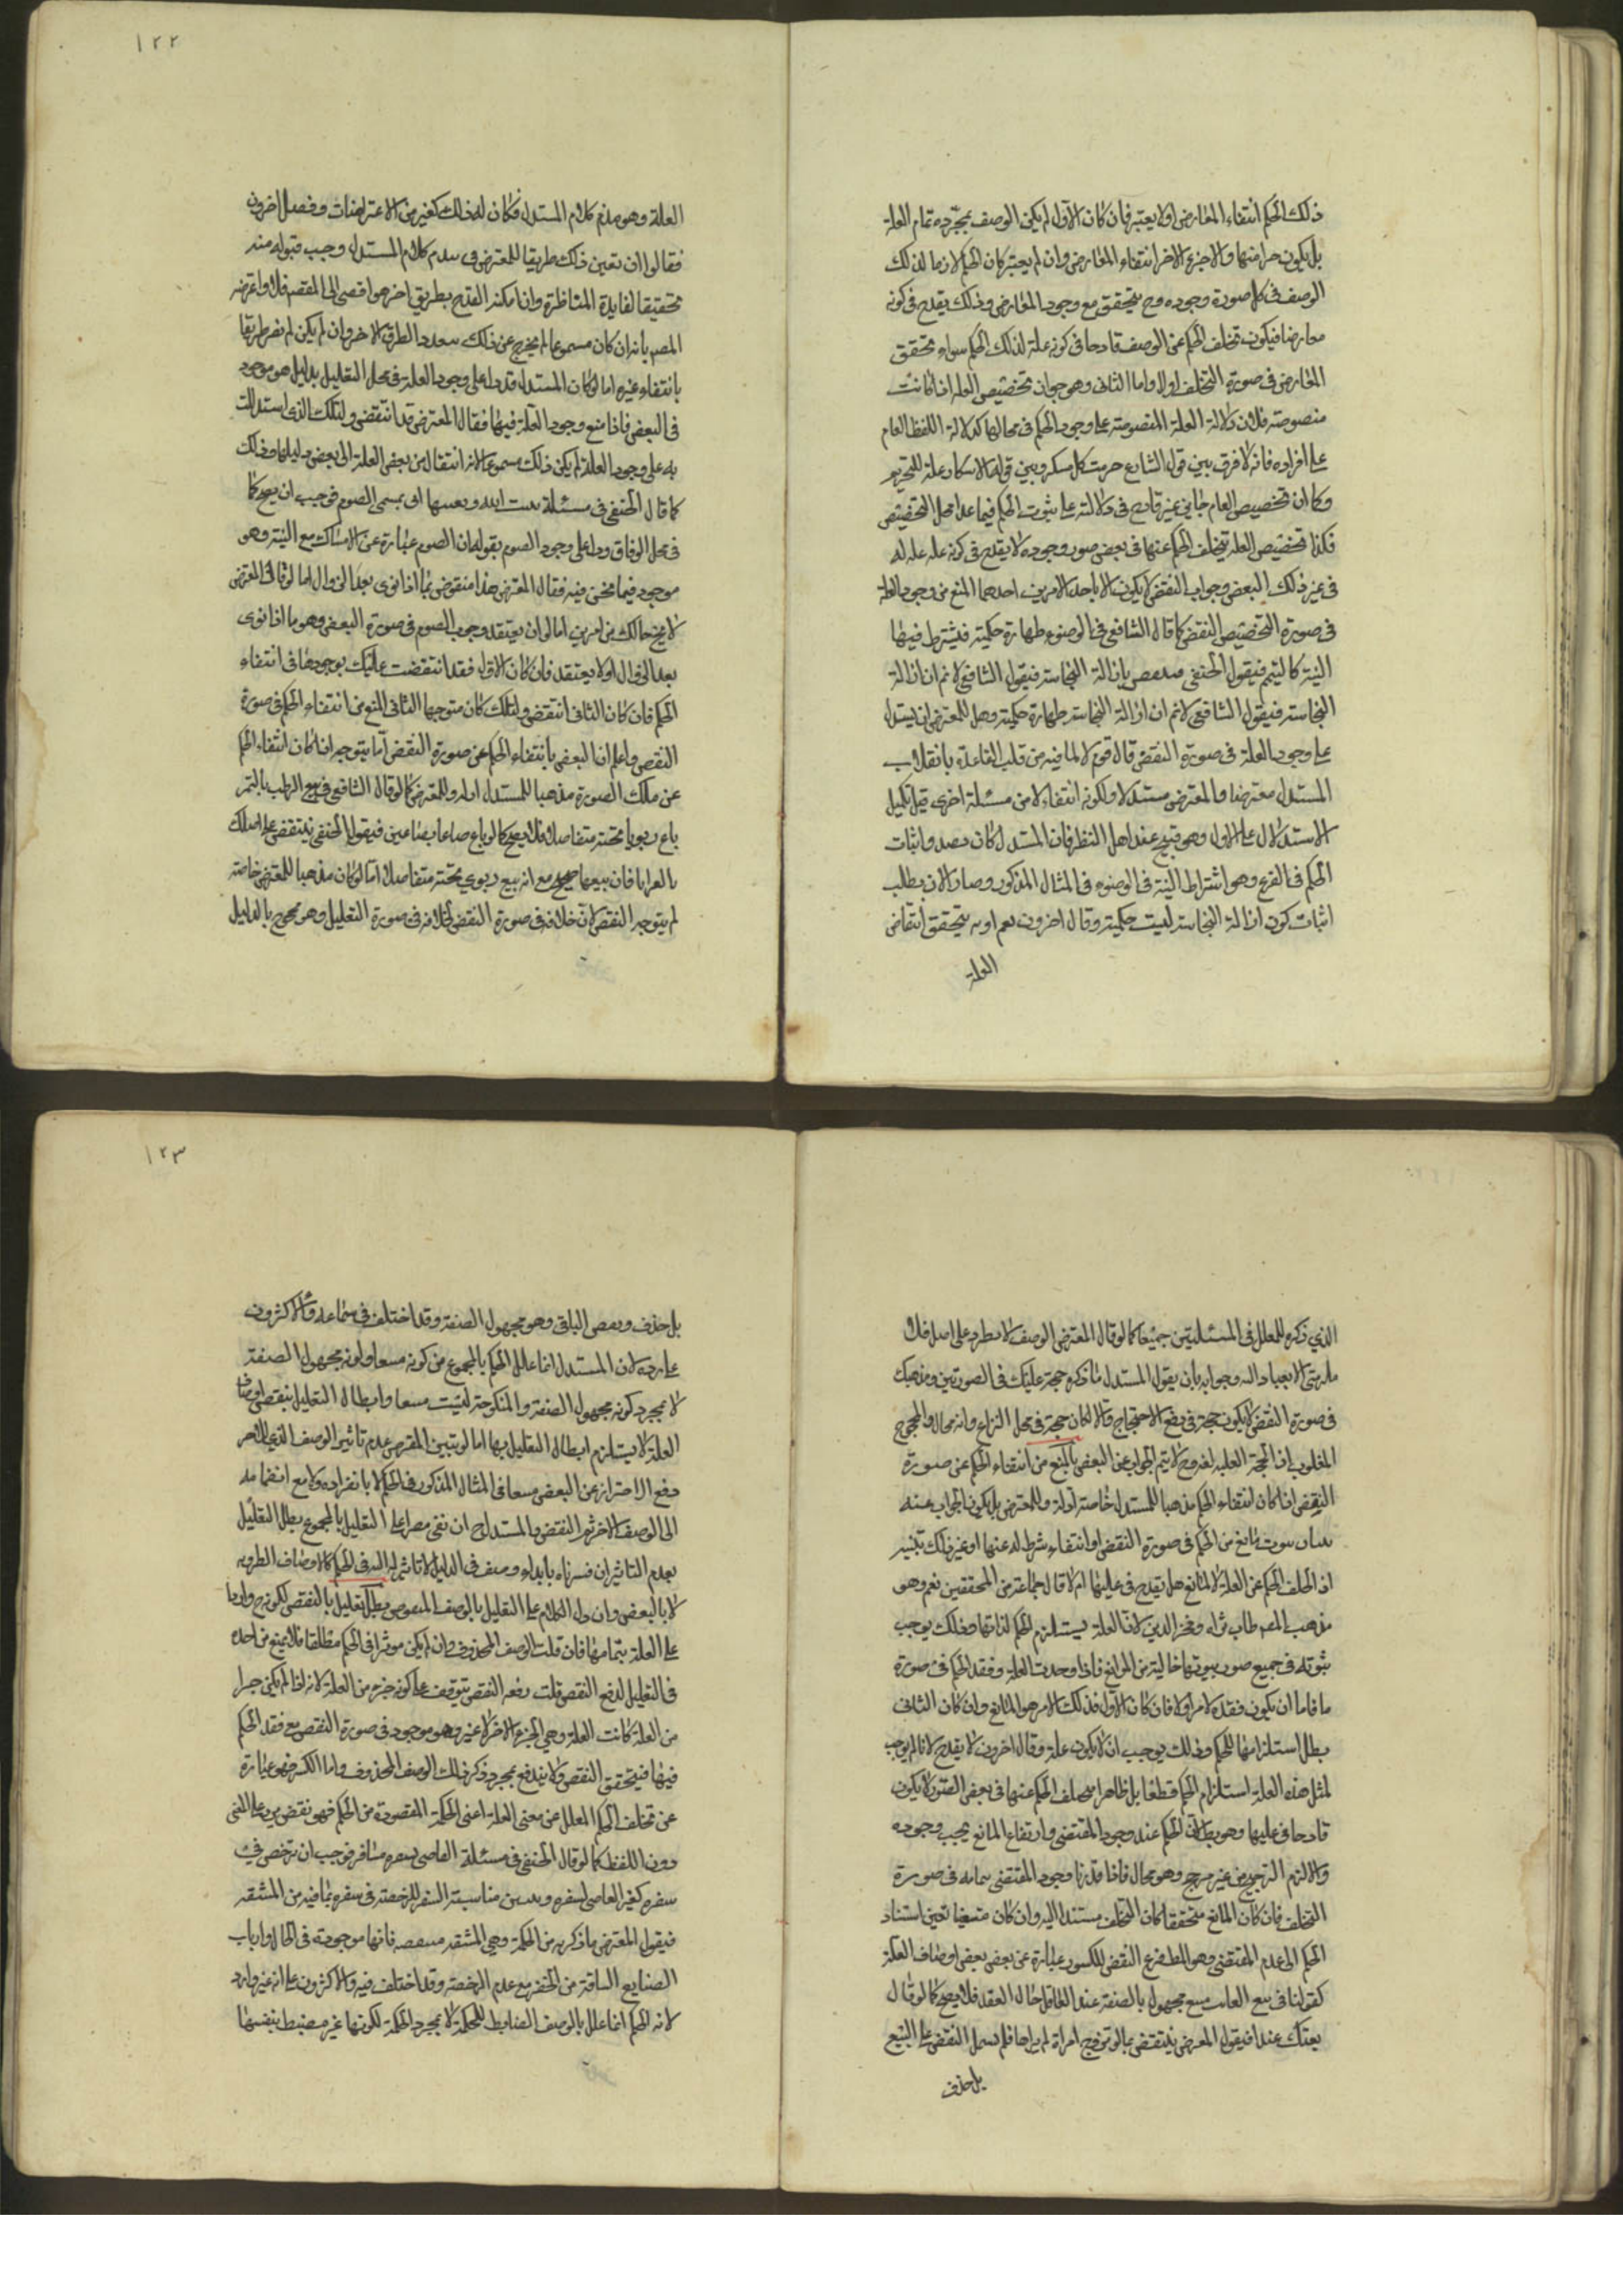 ذلك الحكم انتفاء المعارض او لا يعتبر فان كان الاول لم يكن الوصف بمجرده تمام العلة
بل يكون جزا منها والاجزء الاخر انتفاء المعارض وان لم يعتبر كان الحكم لازما لذلك
الوصف فى كل صورة وجوده وح يتحقق مع وجود المعارض وذلك يقدح فى كونه
معارضا فيكون تخلف الحكم عن الوصف قادحا فى كونه علة لذلك الحكم سواء تحقق
المعارض فى صورة التخلف اولا واما الثانى وهو جواز تخصيص العلة اذا كانت
منصوصة فلان دلالة العلة المنصوصة على وجود الحكم فى محالها كدلالة اللفظ العام
على افراده فانه لا فرق بين قول الشارع حرمت كل مسكر وبين قوله الاسكار علة للتحريم
وكما ان تخصيص العام جايز غير قادح فى دلالته على ثبوت الحكم فيما عدا محل التخصيص
فكذا تخصيص العلة بتخلف الحكم عنها فى بعض صور وجوده لا يقدح فى كونه علة له
فى غير ذلك البعض وجواب النقض لا يكون الا باحد الامرين احدهما المنع من وجود العلة
فى صورة التخصيص النقض كما قال الشافعى فى الوضوء طهارة حكمية فيشترط فيها
النية كالتيمم فيقول الحنفى بازالة النجاسة فيقول الشافعى لا نم ان ازالة
النجاسة فيقول الشافعى لا نم ان ازالة النجاسة طهارة حكمية وهل للمعترض ان يستدل
على وجود العلة فى صورة النقض قال قوم لا لما فيه من قلب القاعدة بانقلاب
المستدل معترضا والمعترض مستدلا ولكونه انتقالا من مسئلة اخرى قبل تكميل
الاستدلال على الاول وهو قبيح عند اهل النظر فان المستدل كان بصدد اثبات
الحكم فى الفرع وهو اشتراط النية فى الوضوء فى المثال المذكور وصار الان يطلب
اثبات كون ازالة النجاسة ليست حكمية وقال اخرون نعم اذ به يتحقق انتقاض
العلة
العلة وهو هدم كلام المستدل فكان له ذلك كغيره من الاعتراضات وفصل اخرون
فقالوا ان تعين ذلك طريقا للمعترض فى هدم كلام المستدل وجب قبوله منه
تحقيقا لفايدة المناظرة وان امكنه القدح بطريق اخر هو افضى الى المقصد فلا واعترضه
المصم بانه ان كان مسموعا لم يخرج عن ذلك بتعدد الطرق الاخر وان لم يكن لم يصر طريقا
بانتفاء غيره اما لو كان المستدل قد دل على وجود العلة فى محل التعليل بدليل هو موجود
فى البعض فاذا منع وجود العلة فيها فقال المعترض قد انتقض دليلك الذى استدللت
به على وجود العلة لم يكن ذلك مسموعا لانه انتقال من نقض العلة الى نقض دليلها وذلك
كما قال الحنفى فى مسئلة اتى بمسمى الصوم فوجب ان يصح كما
فى محل الوفاق ودل على وجود الصوم بقوله ان الصوم عبارة عن الامساك مع النية وهو
موجود فيما نحن فيه فقال المعترض هذا منقوض بما اذا نوى بعد الزوال اما لو قال المعترض
لا يخ حالك من امرين اما ان يعتقد وجود الصوم فى صورة البعض وهو ما اذا نوى
بعد الزوال او لا يعتقد فان كان الاول فقد انتقضت علتك بوجودها فى انتفاء
الحكم فان كان الثانى انتقض دليلك كان متوجها الثانى المنع من انتفاء الحكم فى صورة
النقض واعلم ان البعض بانتفاء الحكم عن صورة النقض انما يتوجه اذا كان انتفاء الحكم
عن ملك الصورة مذهبا للمستدل او له وللمعترض كما لو قال الشافعى فى بيع الرطب بالتمر
باع ربويا بجنسه متفاضلا فلا يصح كما لو باع صاعا بصاعين فيقول الحنفى ينتقض على اصلك
بالعرايا فان بيعها صحيح مع انه بيع ربوى بجنسه متفاضلا اما لو كان مذهبا للمعترض خاصة
لم يتوجه النقض لان خلافه فى صورة النقض كخلافه فى صورة التعليل وهو محجوج بالدليل
الذي ذكره المعلل فى المسئلتين جميعا كما لو قال المعترض الوصف لا يطرد على اصلى فلا
يلزمنى الانقياد اليه وجوابه بان يقول المستدل ما ذكره حجة عليك فى الصورتين ومذهبك
فى صورة النقض لا يكون حجة فى دفع الاحتجاج والا لكان حجة فى محل النزاع وانه محال والمحجوج
المغلوب اذ الحجة الغلبة لغة وح لا يتم الجواب عن البعض بالمنع من انتفاء الحكم عن صورة
النقض اذا كان انتفاء الحكم مذهبا للمستدل خاصة او له وللمعترض بل يكون الجواب عنه
ببيان ثبوت مانع من الحكم فى صورة النقض او انتفاء شرط له عنها او غير ذلك تنبيه
اذا تخلف الحكم عن العلة لا لمانع هل يقدح فى عليتها ام لا قال جماعة من المحققين نعم وهو
مذهب المصم طاب ثراه وفخر الدين لان العلة يستلزم الحكم لذاتها وذلك يوجب
ثبوته فى جميع صور ثبوتها خالية من الموانع فاذا وجدت العلة وفقد الحكم فى صورة
ما فاما ان يكون فقده لامر او لا فان كان الاول فذلك الامر هو المانع وان كان الثانى
بطل استلزامها للحكم وذلك يوجب ان لا يكون علة وقال اخرون لا يقدح لانا لم نوجب
لمثل هذه العلة استلزام الحكم قطعا بل ظاهرا فتخلف الحكم عنها فى بعض الصور لا يكون
قادحا فى عليتها وهو بط لان الحكم عند وجود المقتضى وارتفاع المانع يجب وجوده
والا لزم الترجيح من غير مرجح وهو محال فاذا قدرنا وجود المقتضى بتمامه فى صورة
التخلف فان كان المانع متحققا كان التخلف مستندا اليه وان كان منتفيا تعين استناد
الحكم الى عدم المقتضى وهو المط فرع النقض المكسور عبارة عن نقض بعض اوصاف العلة
كقولنا فى بيع الغائب مبيع مجهول بالصفة عند العاقد حال العقد فلا يصح كما لو قال
بعتك عبدا فيقول المعترض ينتقض بما لو تزوج امراة لم يراها فلم يشمل النقض على المبيع
بل حذف
بل حذف ونقض الباقى وهو مجهول الصفة وقد اختلف فى سماعه والاكثرون
على رده لان المستدل انما علل الحكم بالمجموع من كونه مبيعا وكونه مجهول الصفة
لا بمجرد كونه مجهول الصفة والمنكوحة ليست مبيعا وابطال التعليل ببعض اوصاف
العلة لا يستلزم ابطال التعليل بها اما لو تبين المعترض عدم تاثير الوصف الذي
دفع الاحتراز عن البعض مبيعا فى المثال المذكور فى الحكم لا بانفراده ولا مع انضمامه
الى الوصف الاخر ثم النقض والمستدل ح ان بقى مصرا على التعليل بالمجموع بطل التعليل
بعدم التاثير ان فسرناه بابداء وصف فى الدليل لا تاثير له فى الحكم كالاوصاف الطردية
لا بالبعض وان دل الكلام على التعليل بالوصف المنقوض بطل تعليله بالنقض لكونه ح واردا
على العلة بتمامها فان قلت الوصف المحذوف وان لم يكن موثرا فى الحكم مطلقا فلا يمنع من اخذه
فى التعليل لدفع النقض قلت دفعه النقض يتوقف على كونه جزء من العلة لانه اذا لم يكن جزا
من العلة كانت العلة وهي الجزء الاخر لا غير وهو موجود فى صورة النقض مع فقد الحكم
فيها فيتحقق النقض ولا يندفع بمجرد ذكر ذلك الوصف المحذوف واما الكسر فهو عبارة
عن تخلف الحكم المعلل عن معنى العلة اعنى الحكمة المقصودة من الحكم فهو نقض يرد على المعنى
دون اللفظ كما لو قال الحنفى فى مسئلة العاصى بسفره مسافر فوجب ان يترخص فى
سفره كغير العاصى بسفره وبين مناسبة السفر للرخصة فى سفره بما فيه من المشقة
فيقول المعترض ما ذكرته من الحكمة وهى المشقة منتقضة فانها موجودة فى الحمال وارباب
الصنايع الشاقة من الحضر مع عدم الرخصة وقد اختلف فيه والاكثرون على انه غير وارد
لانه الحكم انما علل بالوصف الضابط للحكمة لا بمجرد الحكمة لكونها غير منضبطة بنفسها
١٢٢
١٢٣